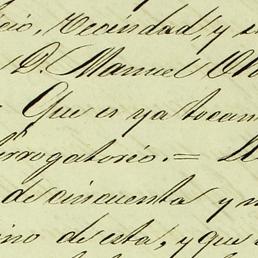 cio, vecindad, y s
D. Manuel Ol
Que es ya tocan
terrogatorio.=
de cincuenta y n
ino de esta, y que